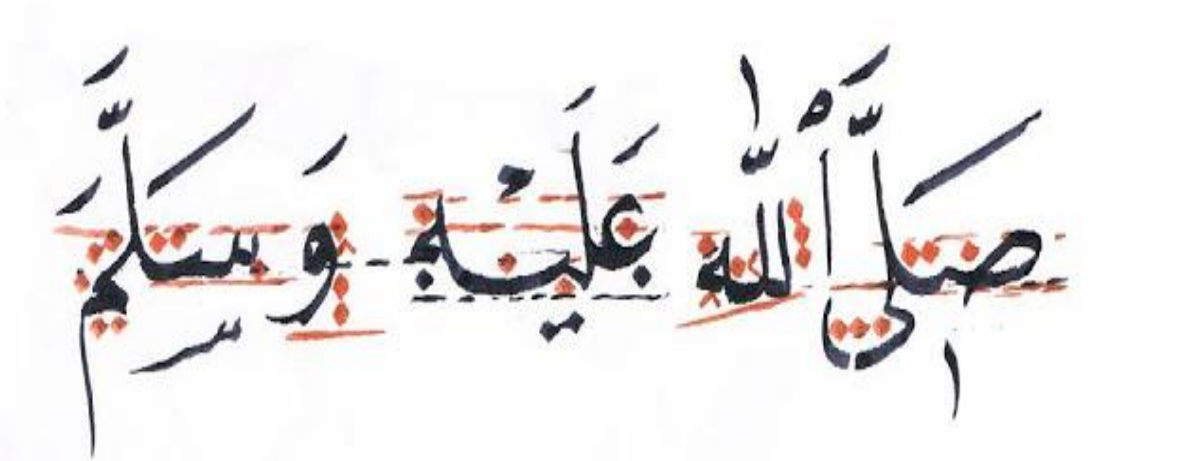 صَلَّى اللّٰهُ عَلَيْهِ وَسَلَّمَ